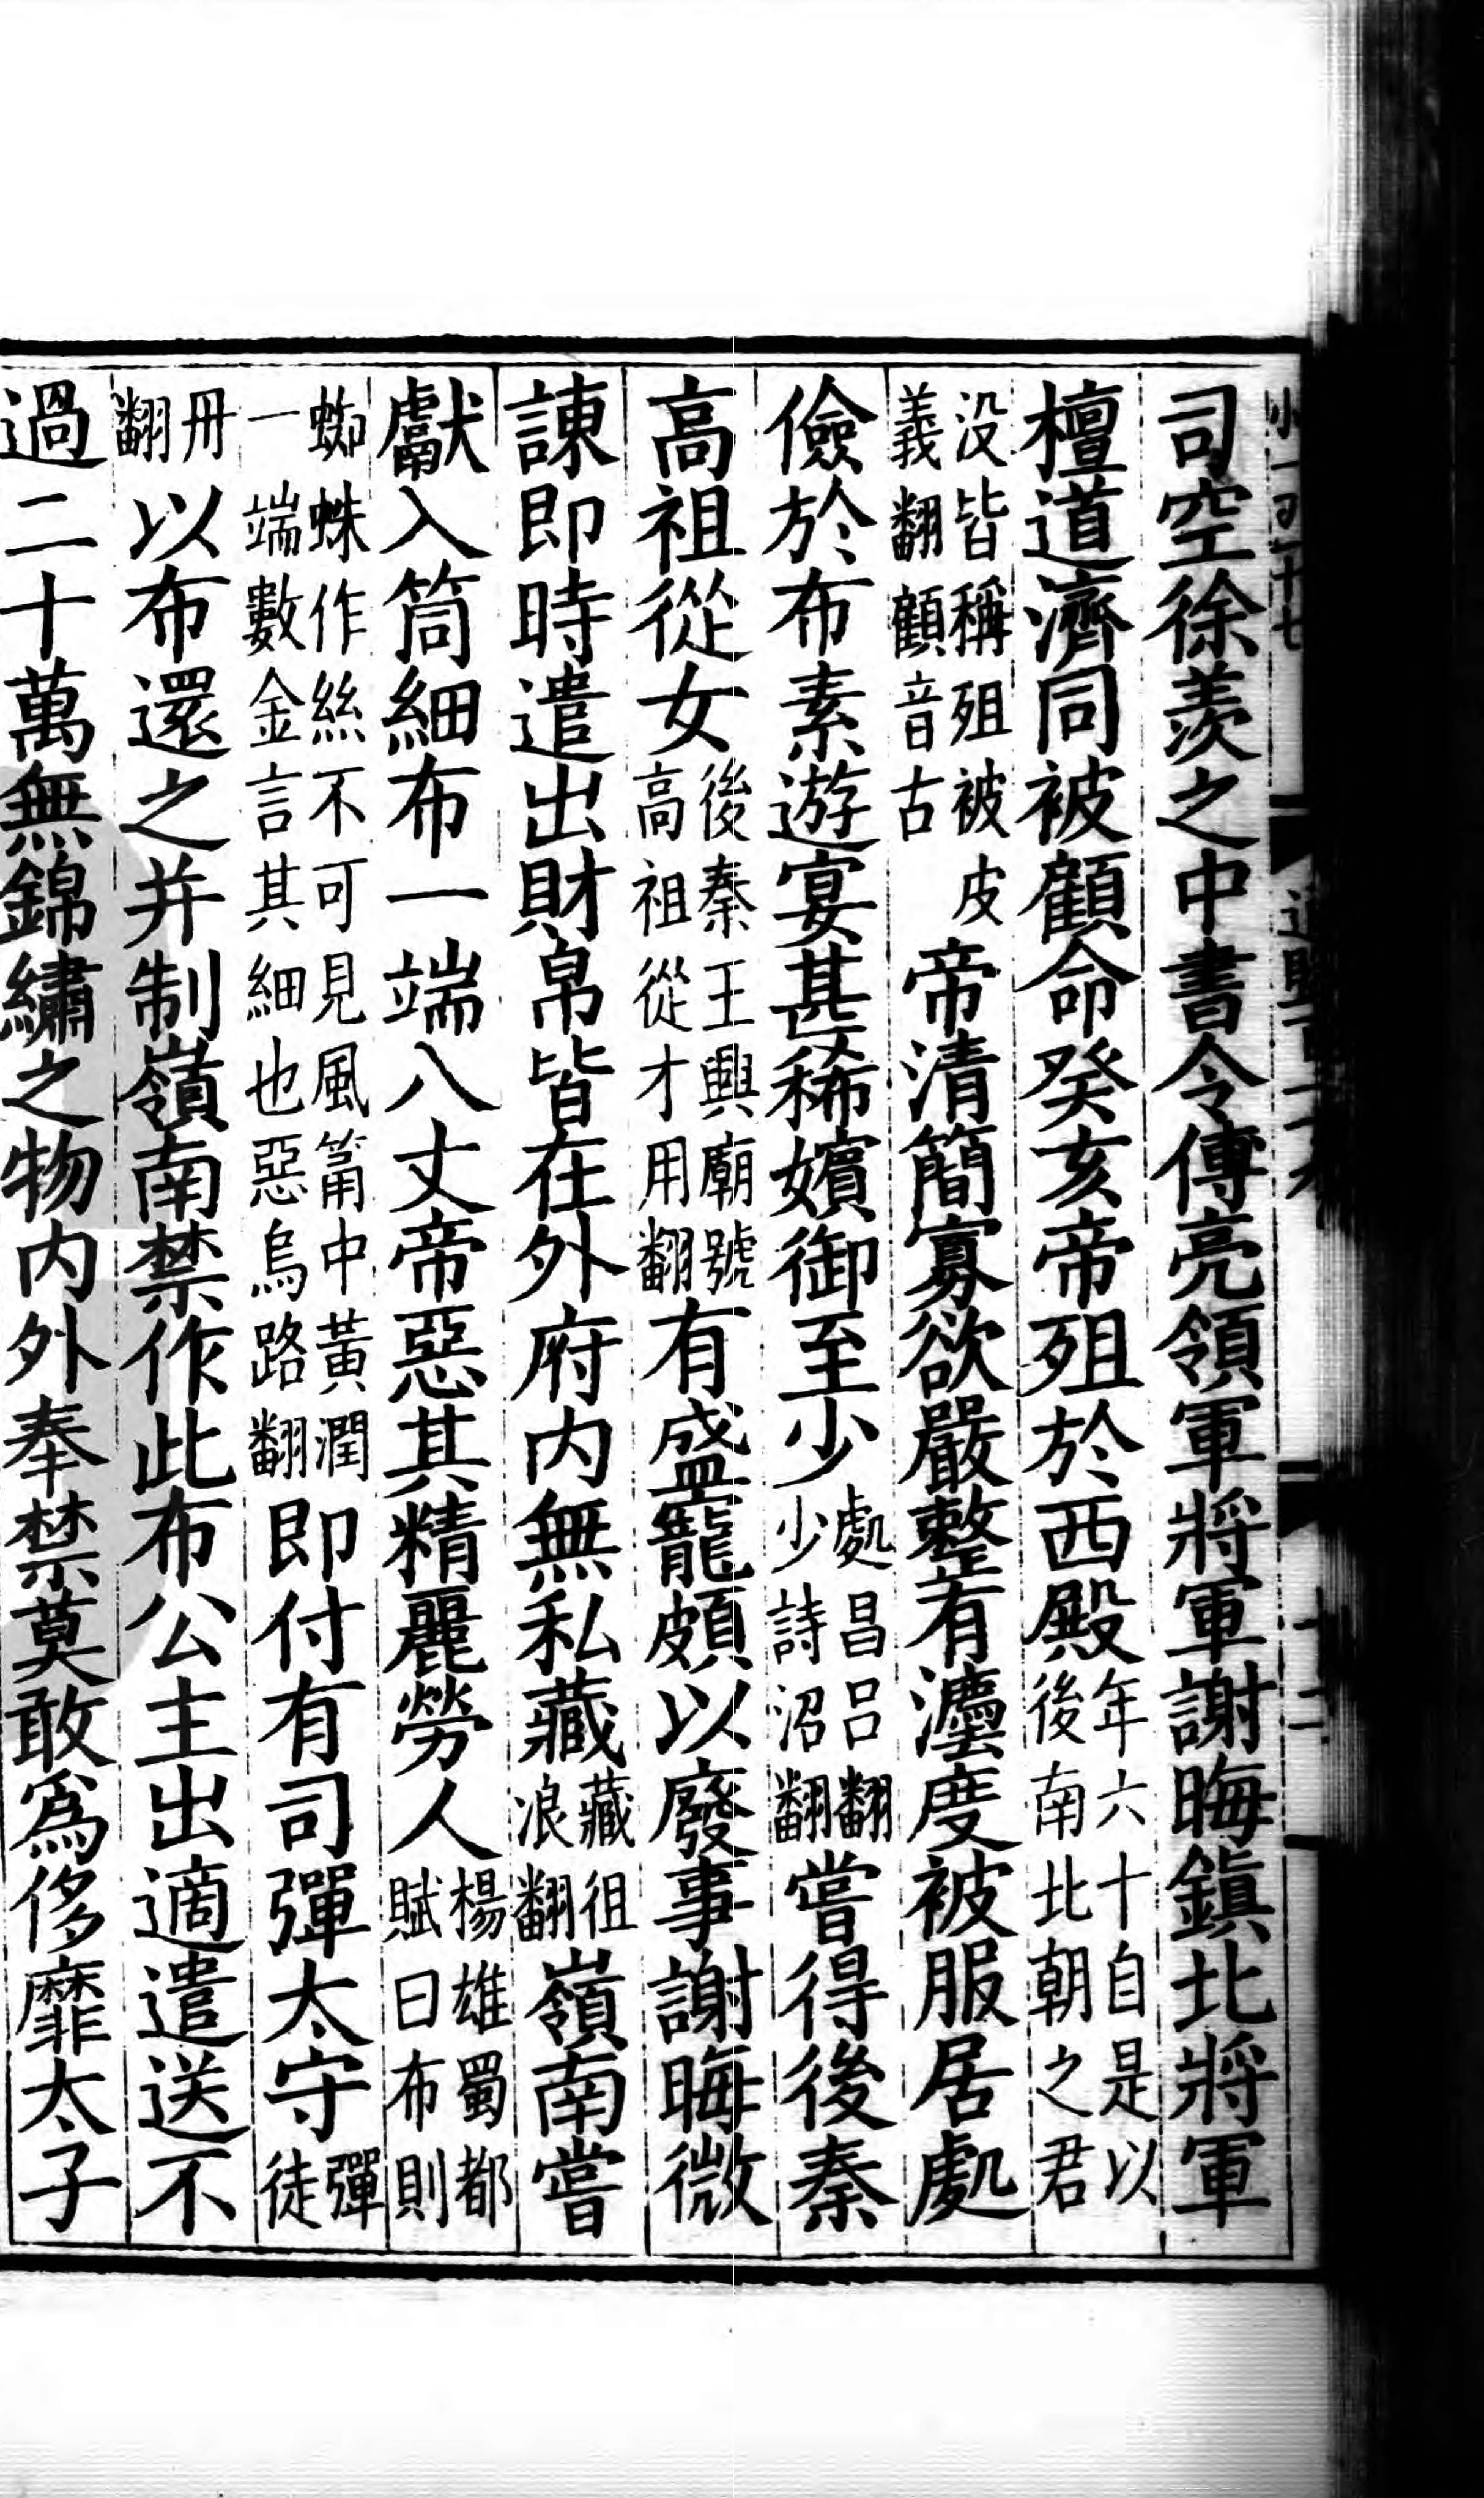 司空徐羨之中書令傅亮領軍將軍謝晦鎭北將軍
檀道濟同被顧命癸亥帝殂於西殿年六十自是以後南北朝之君
没皆稱殂被皮義翻顧音古帝清簡寡欲嚴整有灋度被服居處
儉於布素遊宴甚稀嬪御至少處昌呂翻少詩沼翻嘗得後秦
高祖從女後秦王興廟號高祖從才用翻有盛寵頗以廢事謝晦微
諫即時遣出財帛皆在外府内無私藏藏徂浪翻嶺南嘗
獻入筒細布一端八丈帝惡其精麗勞人楊雄蜀都賦曰布則
蜘蛛作絲不可見風筩中黃潤一端數金言其細也惡烏路翻即付有司彈太守彈徒
冊翻以布還之并制嶺南禁作此布公主出適遣送不
過二十萬無錦繡之物内外奉禁莫敢爲侈靡太子